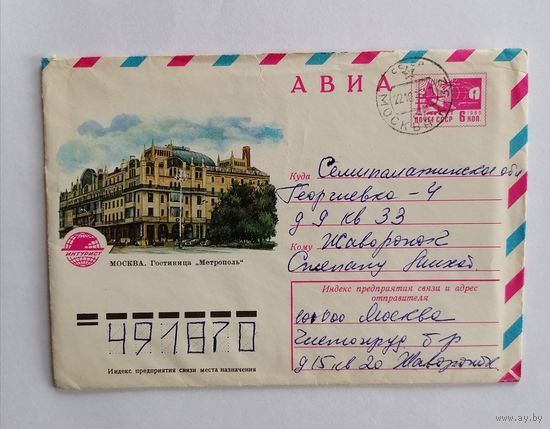 АВИА
МОСКВА
ПОЧТА СССР
6 КОП.
Куда Семипалатинская обл
Георгиевка - 4
д 9 кв 33
Кому Жаворонок
Степану Михат.
ИНТУРИСТ
МОСКВА. Гостиница „Метрополь“
Индекс предприятия связи и адрес
отправителя
101000 Москва
Чистопруд б-р
д 15 кв 20 Жаворонок
491870
Индекс предприятия связи места назначения
www.ay.by